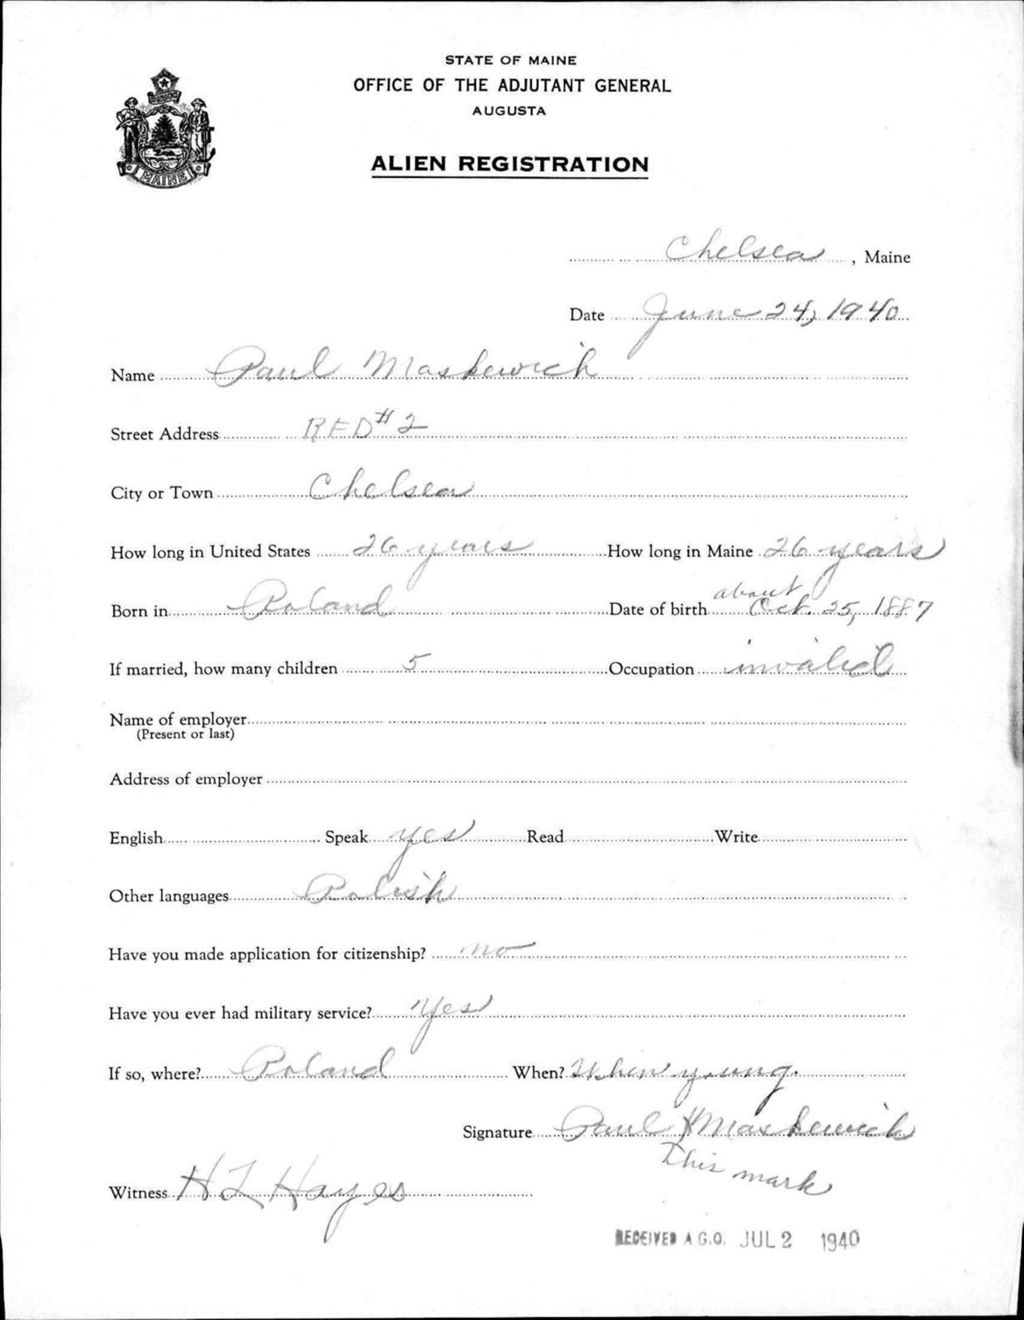 STATE OF MAINE
OFFICE OF THE ADJUTANT GENERAL
AUGUSTA
ALIEN REGISTRATION
MAINE
Chelsea, Maine
Date June 24, 1940
Name Paul Maskewich
Street Address RFD #2
City or Town Chelsea
How long in United States 26 years How long in Maine 26 years
Born in Poland Date of birth about Oct. 25, 1887
If married, how many children 5 Occupation invalid
Name of employer
(Present or last)
Address of employer
English Speak yes Read Write
Other languages Polish
Have you made application for citizenship? no
Have you ever had military service? Yes
If so, where? Poland When? When young.
Signature Paul X Maskewich
This mark
Witness H L Hayes
RECEIVED A.G.O. JUL 2 1940